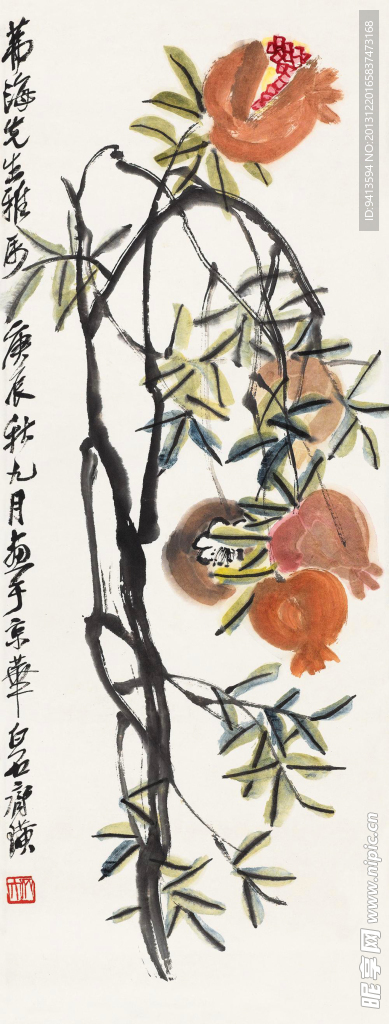 海先生雅
庚辰秋九月画于京华 白石齐璜
ID:9413594 NO:20131220165837473168
昵享网 www.nipic.cn